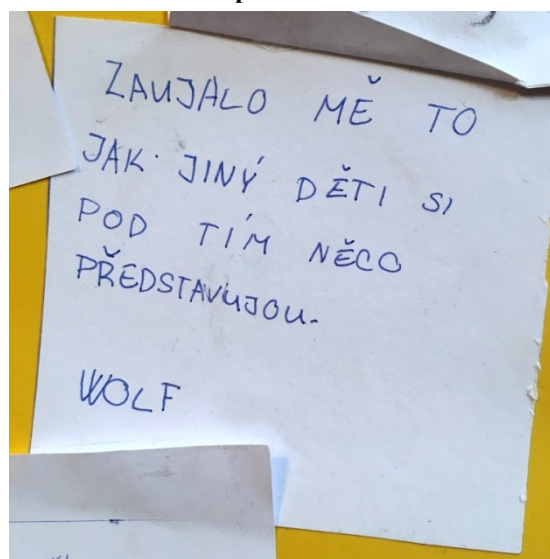 ZAUJALO MĚ TO
JAK JINÝ DĚTI SI
POD TÍM NĚCO
PŘEDSTAVUJOU.
WOLF